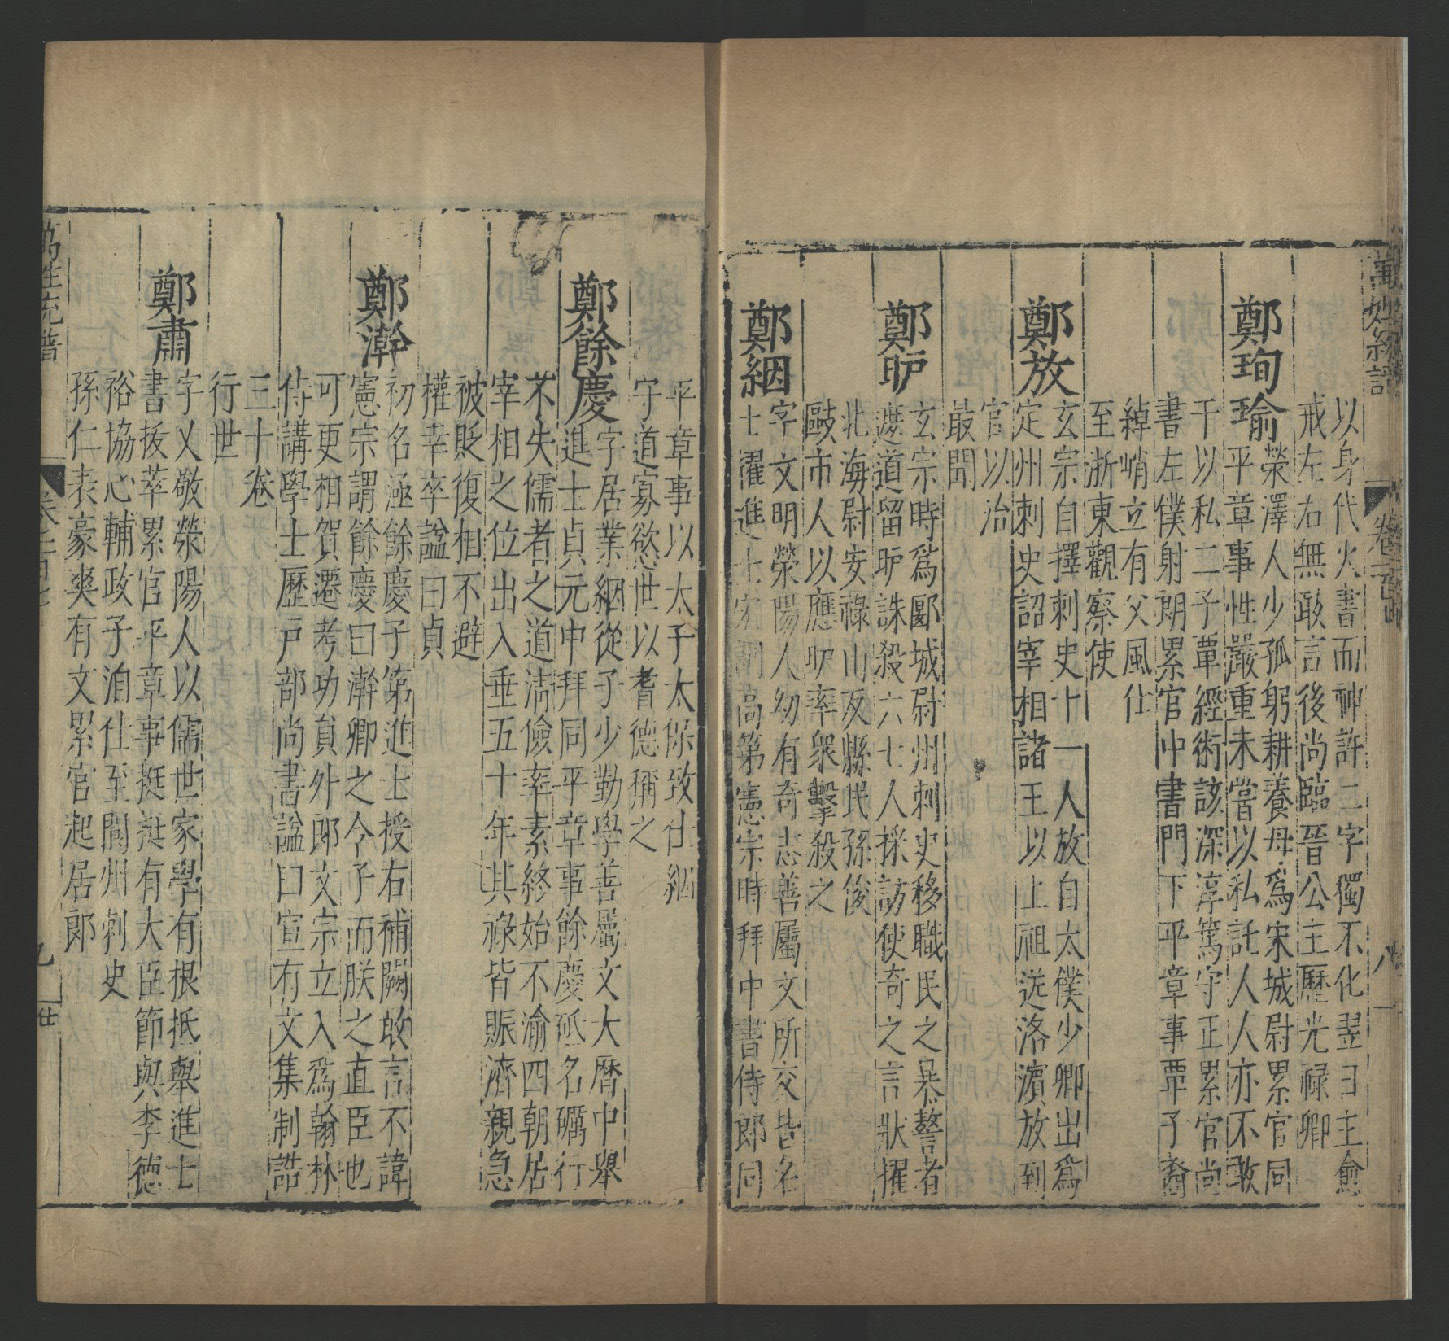 萬姓統譜 卷一百七 八
以身代火書而神許二字獨不化翌日主愈
戒左右無敢言後尚臨晉公主歷光祿卿
鄭珣瑜 滎澤人少孤躬耕養母為宋城尉累官同
平章事性嚴重未嘗以私託人人亦不敢
干以私二子覃經術該深淳篤守正累官尚
書左僕射朗累官中書門下平章事覃子裔
綽峭立有父風仕
至浙東觀察使
鄭放 玄宗自擇刺史十一人放自太僕少卿出為
定州刺史詔宰相諸王以上祖送洛濱放到
官以治
最聞
鄭昈 玄宗時為郾城尉州刺史移職民之暴謷者
遮道留昈誅殺六七人採訪使奇之言狀擢
北海尉安祿山反縣民孫俊
毆市人以應昈率眾擊殺之
鄭絪 字文明滎陽人幼有奇志善屬文所交皆名
士擢進士宏詞高第憲宗時拜中書侍郎同
平章事以太子太保致仕絪
守道寡慾世以耆德稱之
鄭餘慶 字居業絪從子少勤學善屬文大曆中舉
進士貞元中拜同平章事餘慶砥名礪行
不失儒者之道清儉率素終始不渝四朝居
宰相之位出入垂五十年其祿皆賑濟親急
被貶復相不避
權幸卒諡曰貞
鄭澣 初名涵餘慶子第進士授右補闕敢言不諱
憲宗謂餘慶曰澣卿之令子而朕之直臣也
可更相賀遷考功員外郎文宗立入為翰林
侍講學士歷戶部尚書諡曰宣有文集制誥
三十卷
行世
鄭肅 字乂敬滎陽人以儒世家學有根抵舉進士
書拔萃累官平章事挺挺有大臣節與李德
裕協心輔政子洎仕至閬州刺史
孫仁表豪爽有文累官起居郎
萬姓統譜 九